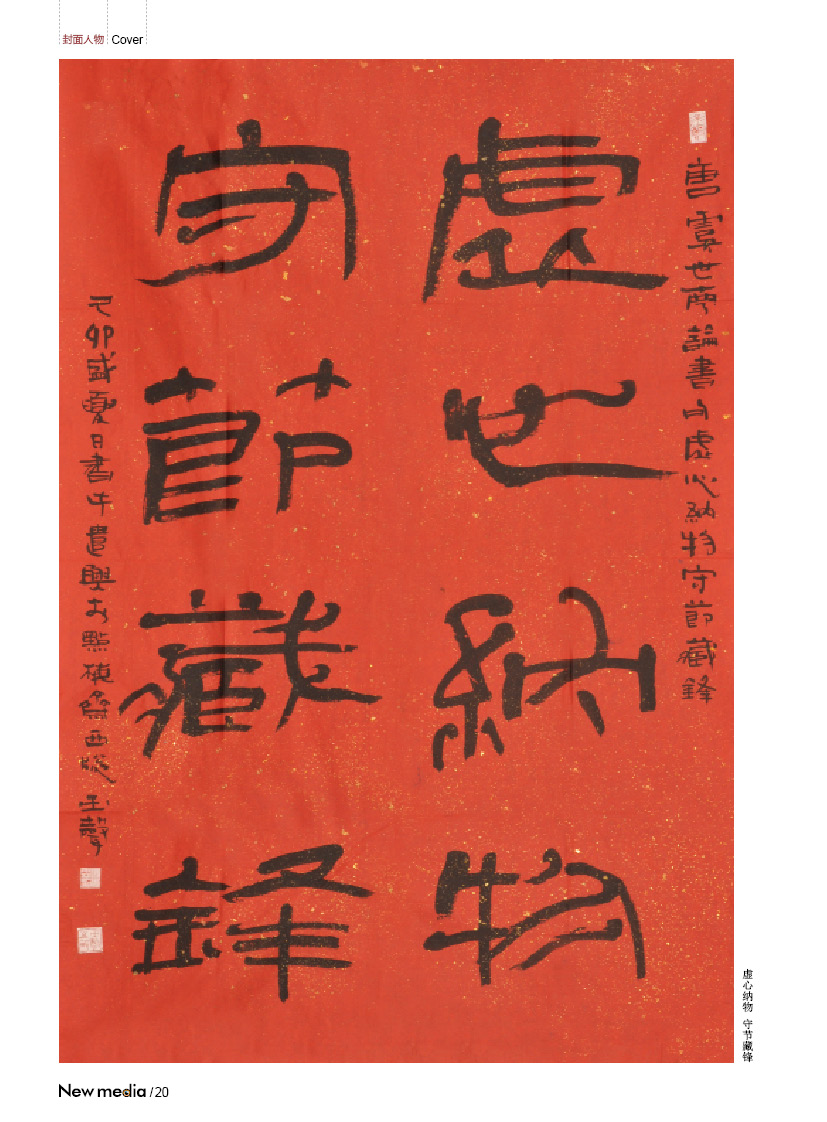 封面人物 Cover
虛心納物
守節藏鋒
唐虞世南論書句虛心納物守節藏鋒
己卯盛夏日書 遣興於點 西 玉聲
虚心纳物 守节藏锋
New media /20